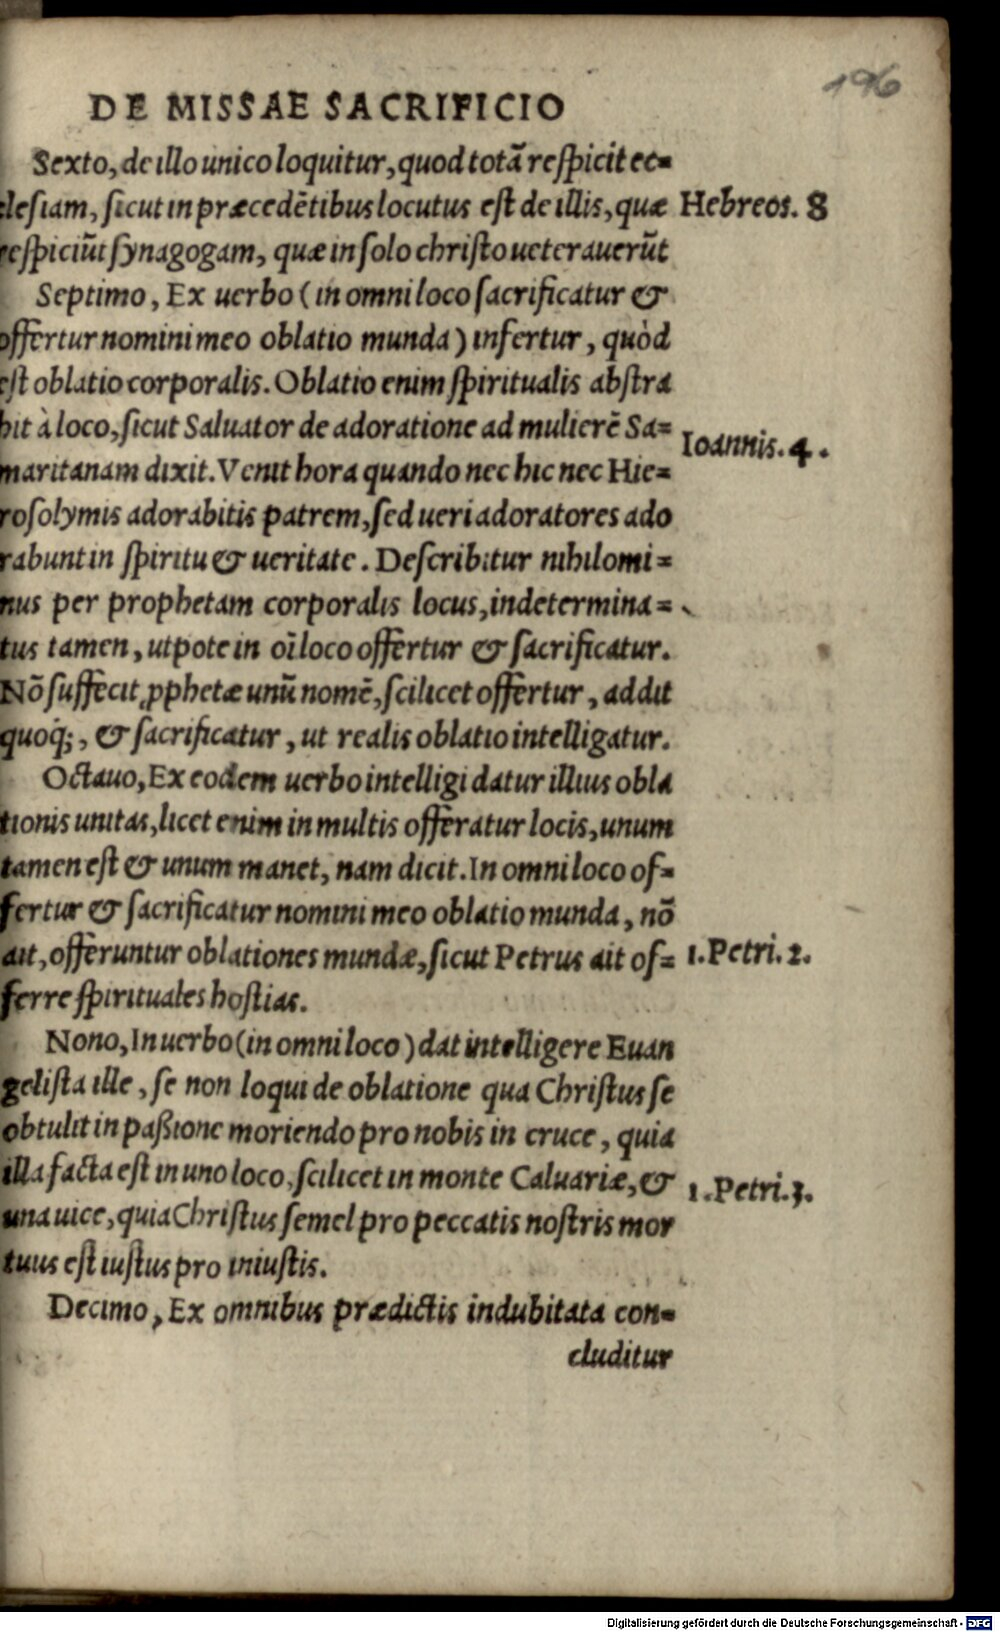 196
DE MISSAE SACRIFICIO
Sexto, de illo unico loquitur, quod totā respicit ec=
clesiam, sicut in præcedētibus locutus est de illis, quæ
Hebreos. 8
respiciūt synagogam, quæ in solo christo ueterauerūt
Septimo, Ex uerbo (in omni loco sacrificatur &
offertur nomini meo oblatio munda) infertur, quòd
est oblatio corporalis. Oblatio enim spiritualis abstra
hit à loco, sicut Saluator de adoratione ad mulierē Sa=
Ioannis. 4.
maritanam dixit. Venit hora quando nec hic nec Hie=
rosolymis adorabitis patrem, sed ueri adoratores ado
rabunt in spiritu & ueritate. Describitur nihilomi=
nus per prophetam corporalis locus, indetermina=
tus tamen, utpote in oī loco offertur & sacrificatur.
Nō suffecit ꝓphetæ unū nomē, scilicet offertur, addit
quoq;, & sacrificatur, ut realis oblatio intelligatur.
Octauo, Ex eodem uerbo intelligi datur illius obla
tionis unitas, licet enim in multis offeratur locis, unum
tamen est & unum manet, nam dicit. In omni loco of=
fertur & sacrificatur nomini meo oblatio munda, nō
ait, offeruntur oblationes mundæ, sicut Petrus ait of=
1. Petri. 2.
ferre spirituales hostias.
Nono, In uerbo (in omni loco) dat intelligere Euan
gelista ille, se non loqui de oblatione qua Christus se
obtulit in paßione moriendo pro nobis in cruce, quia
illa facta est in uno loco, scilicet in monte Caluariæ, &
1. Petri. 3.
una uice, quia Christus semel pro peccatis nostris mor
tuus est iustus pro iniustis.
Decimo, Ex omnibus prædictis indubitata con=
cluditur
Digitalisierung gefördert durch die Deutsche Forschungsgemeinschaft - DFG